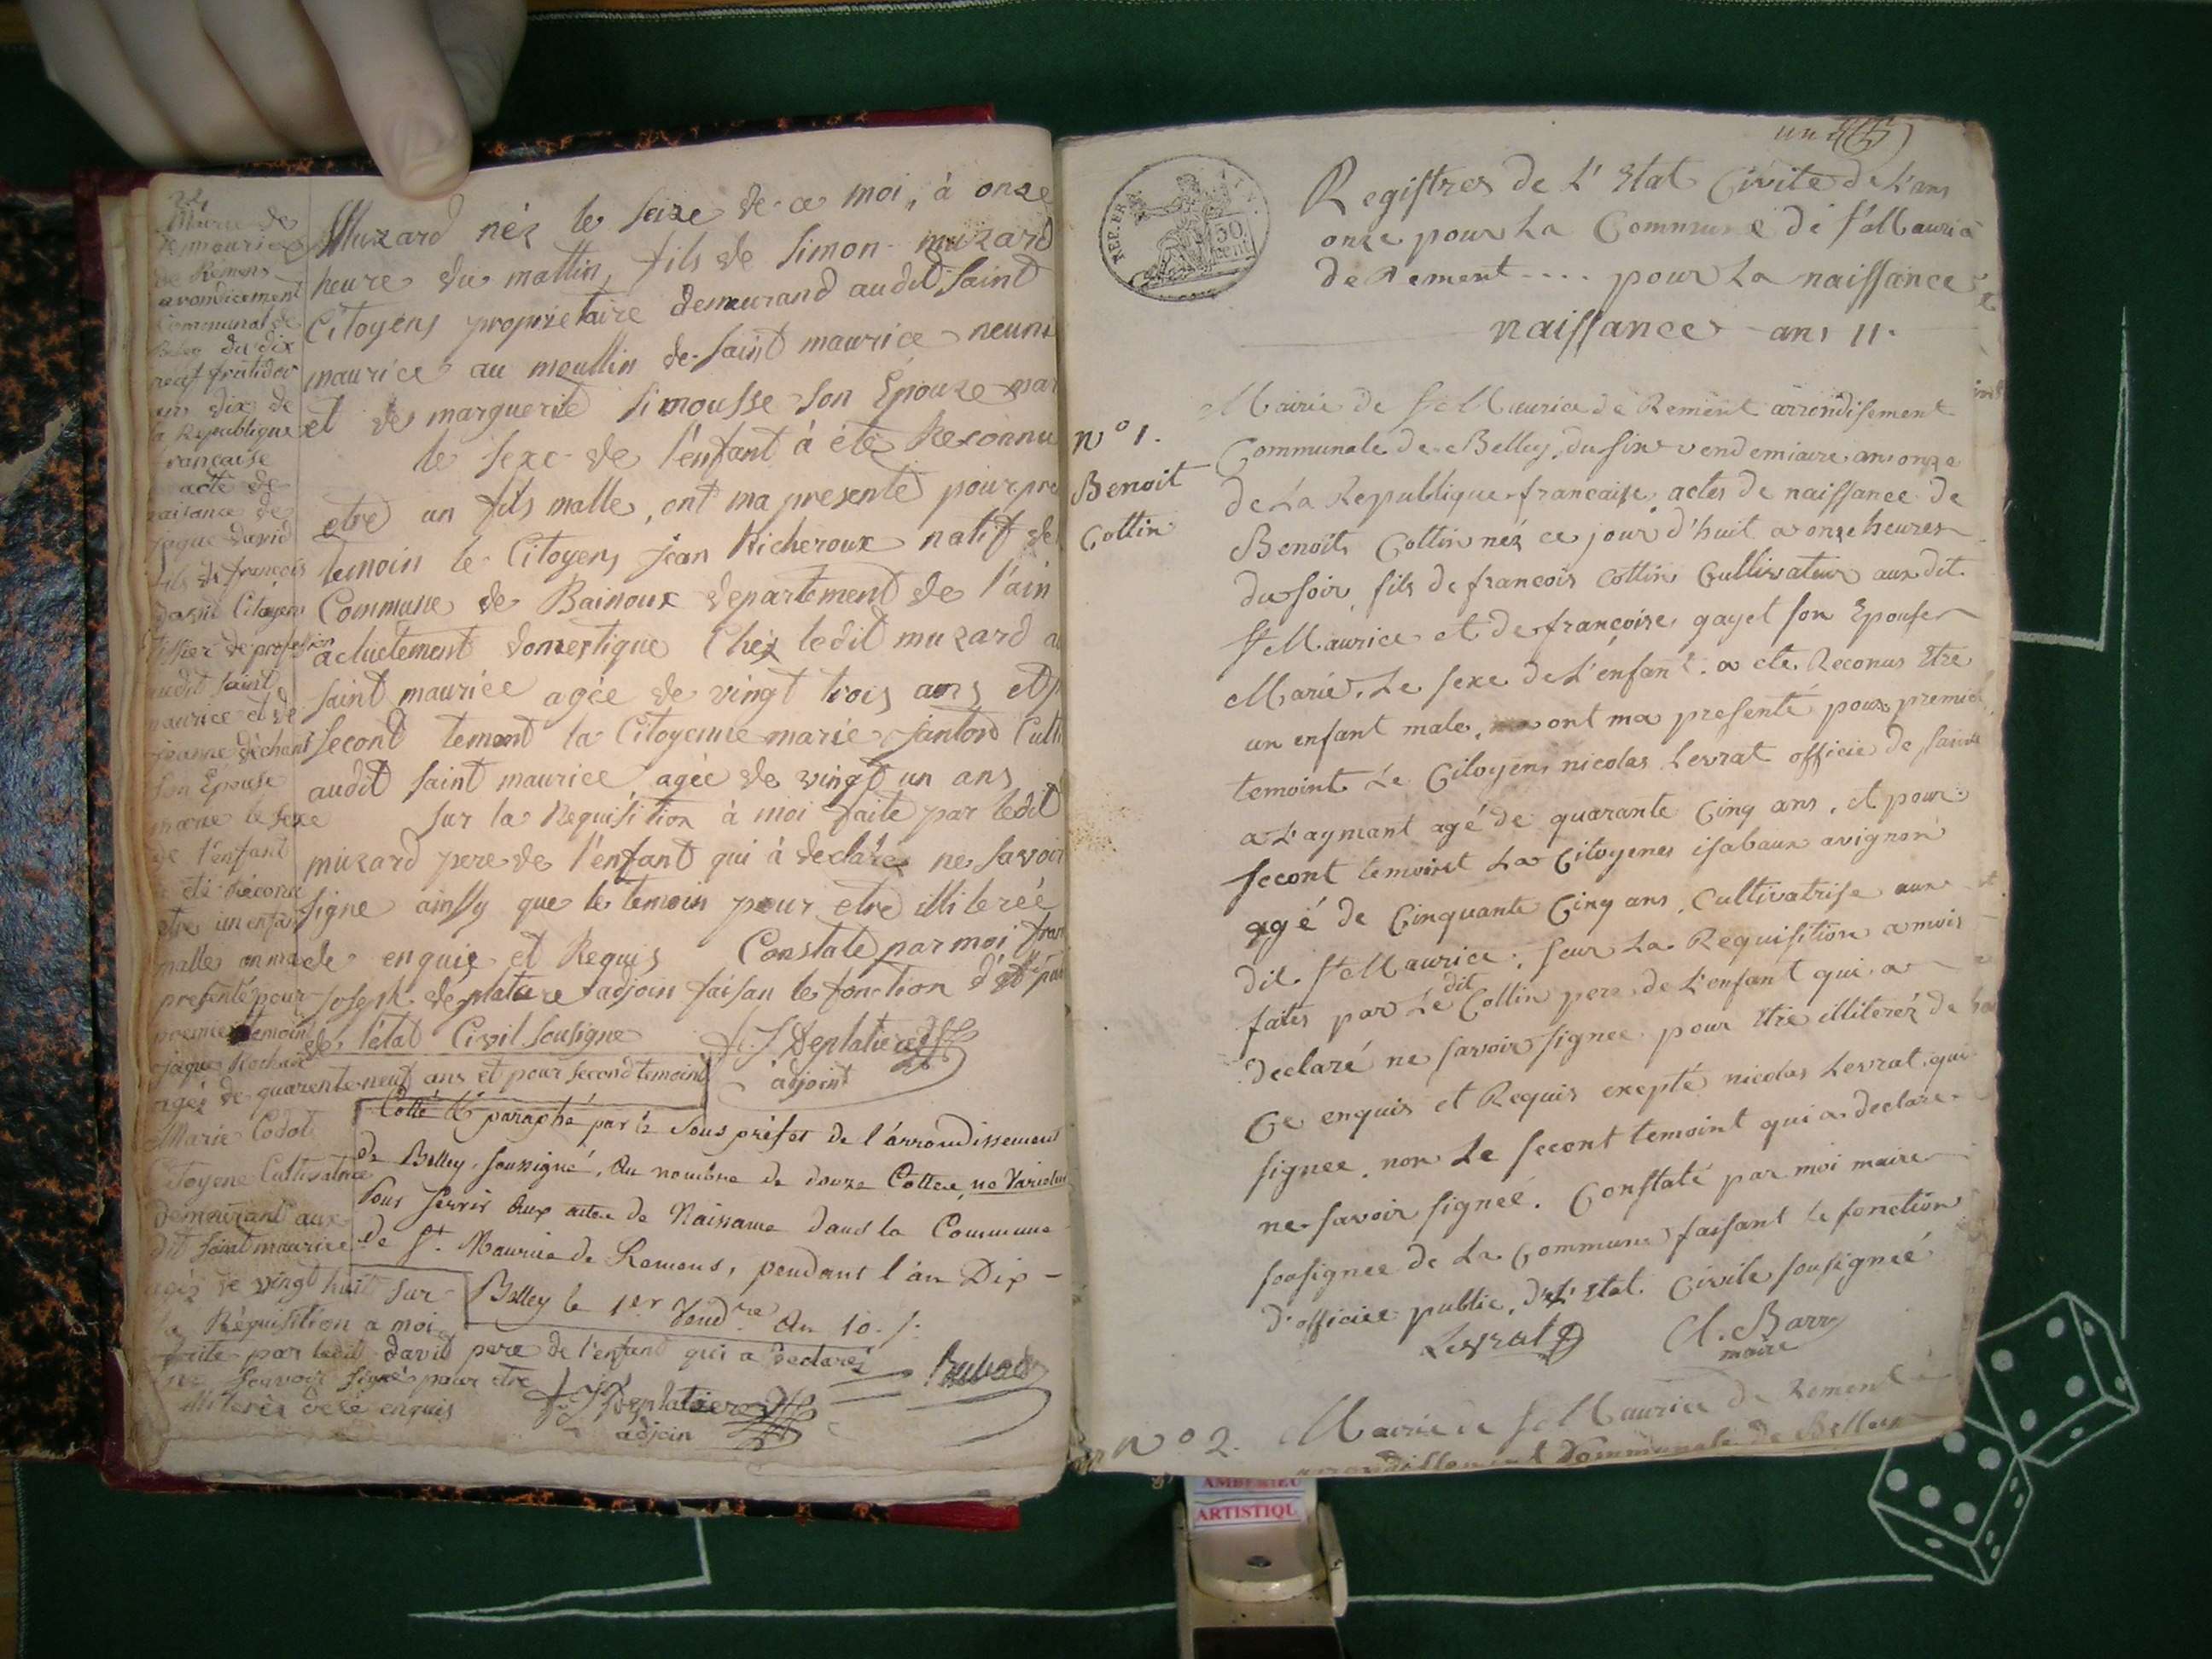 22
Mairie de
St mauricee
de Remens
arondicement
Communal de
Beley du dix
neuf frutidor
an dix de
la Republique
francaise
acte de
naisance de
jaque david
fils de francois
david Citoyen
tissier de profession
audit saint
maurice et de
jeanne dechant
son Epouse
marie le sexe
de l'enfant
a eté réconu
etre un enfant
malle on ma
presenté pour
premier temoint
jaque Rochaid
agéz de quarente neuf ans et pour second temoint
Marie Codot
Citoyene Cultivatrice
demeurant aux
dit saint maurice
agéz de vingt huit sur
la Réquisition a moi
faite par ledit david pere de l'enfant qui a declarez
ne scavoir signé pour etre
illiteréz de ce enquis
f. J. Deplatiere
adjoin
Muzard néz le seize de ce moi, à onze
heure du mattin, fils de Simon muzard
Citoyens proprietaire demeurand audit Saint
maurice au moullin de saint maurice neuni
et de marguerite Simousse son Epouze mar
le sexe de l'enfant à été Reconnu
etre un fils malle, ont ma presenté pour pre
temoin le Citoyens jean Richeroux natif de
Commune de Bainoux departement de l'ain
actuelement domestique Chez ledit muzard a
saint maurice agée de vingt trois ans et p
second temoint la Citoyenne marie janton Culti
audit saint maurice agée de vingt un ans
sur la Requisition à moi faite par ledit
muzard pere de l'enfant qui à declarez ne savoir
signe ainssy que le temoin pour etre illiterée
de enquie et Requis Constate par moi fran
Joseph deplatiere adjoin faisan le fonction d'off pub
de l'état Civil sousigne
f. J Deplatiere
adjoint
Cotté & paraphé par le Sous préfet de l'arrondissement
de Belley, soussigné, Au nombre de douze Cottes, ne Varietur
Pour servir Aux actes de Naissance dans la Commune
de St. Maurice de Remens, pendant l'an Dix -
Belley le 1er Vend.re An 10.
un
NER.ER
50 cent
Registres de L'Etat Civile de L'ans
onze pour La Commune de St Maurice
de Rement .... pour La naissance
naissance ans 11.
n° 1.
Benoit
Cottin
Mairie de St Maurice de Rement arrondisement
Communale de Belley, du six vendemiaire ans onze
de La Republique francaise, actes de naissance de
Benoit Cottin néz ce jour d'huit a onze heures
du soir, fils de francois Cottin Cultivateur aux dit
St Maurice et de francoise gayet son Epouse
Marie, Le sexe de L'enfant a eté Reconus Etre
un enfant male, ont ma presenté pour premier
temoint Le Citoyen nicolas Levrat officié de Santé
a L'aymant agé de quarante Cinq ans, et pour
secont temoint La Citoyenes isabaux avignon
agé de Cinquante Cinq ans, Cultivatrise aux
dit St Maurice, Seur La Requisition a mois
faites par Le dit Cottin pere de L'enfant qui a
declaré ne savoir signee pour Etre illiteréz de
Ce enquis et Requis exepté nicolas Levrat qui
signee, non Le secont temoint qui a declare
ne savoir signeé. Constaté par moi maire
sousignee de La Commune faisant le fonction
d'officiee public, de L'Etat Civile sousigneé
Levrat
Cl. Barr
maire
n° 2. Mairie de St Maurice de Rement
arrondissement Communale de Belley
AMBERIEU
ARTISTIQU